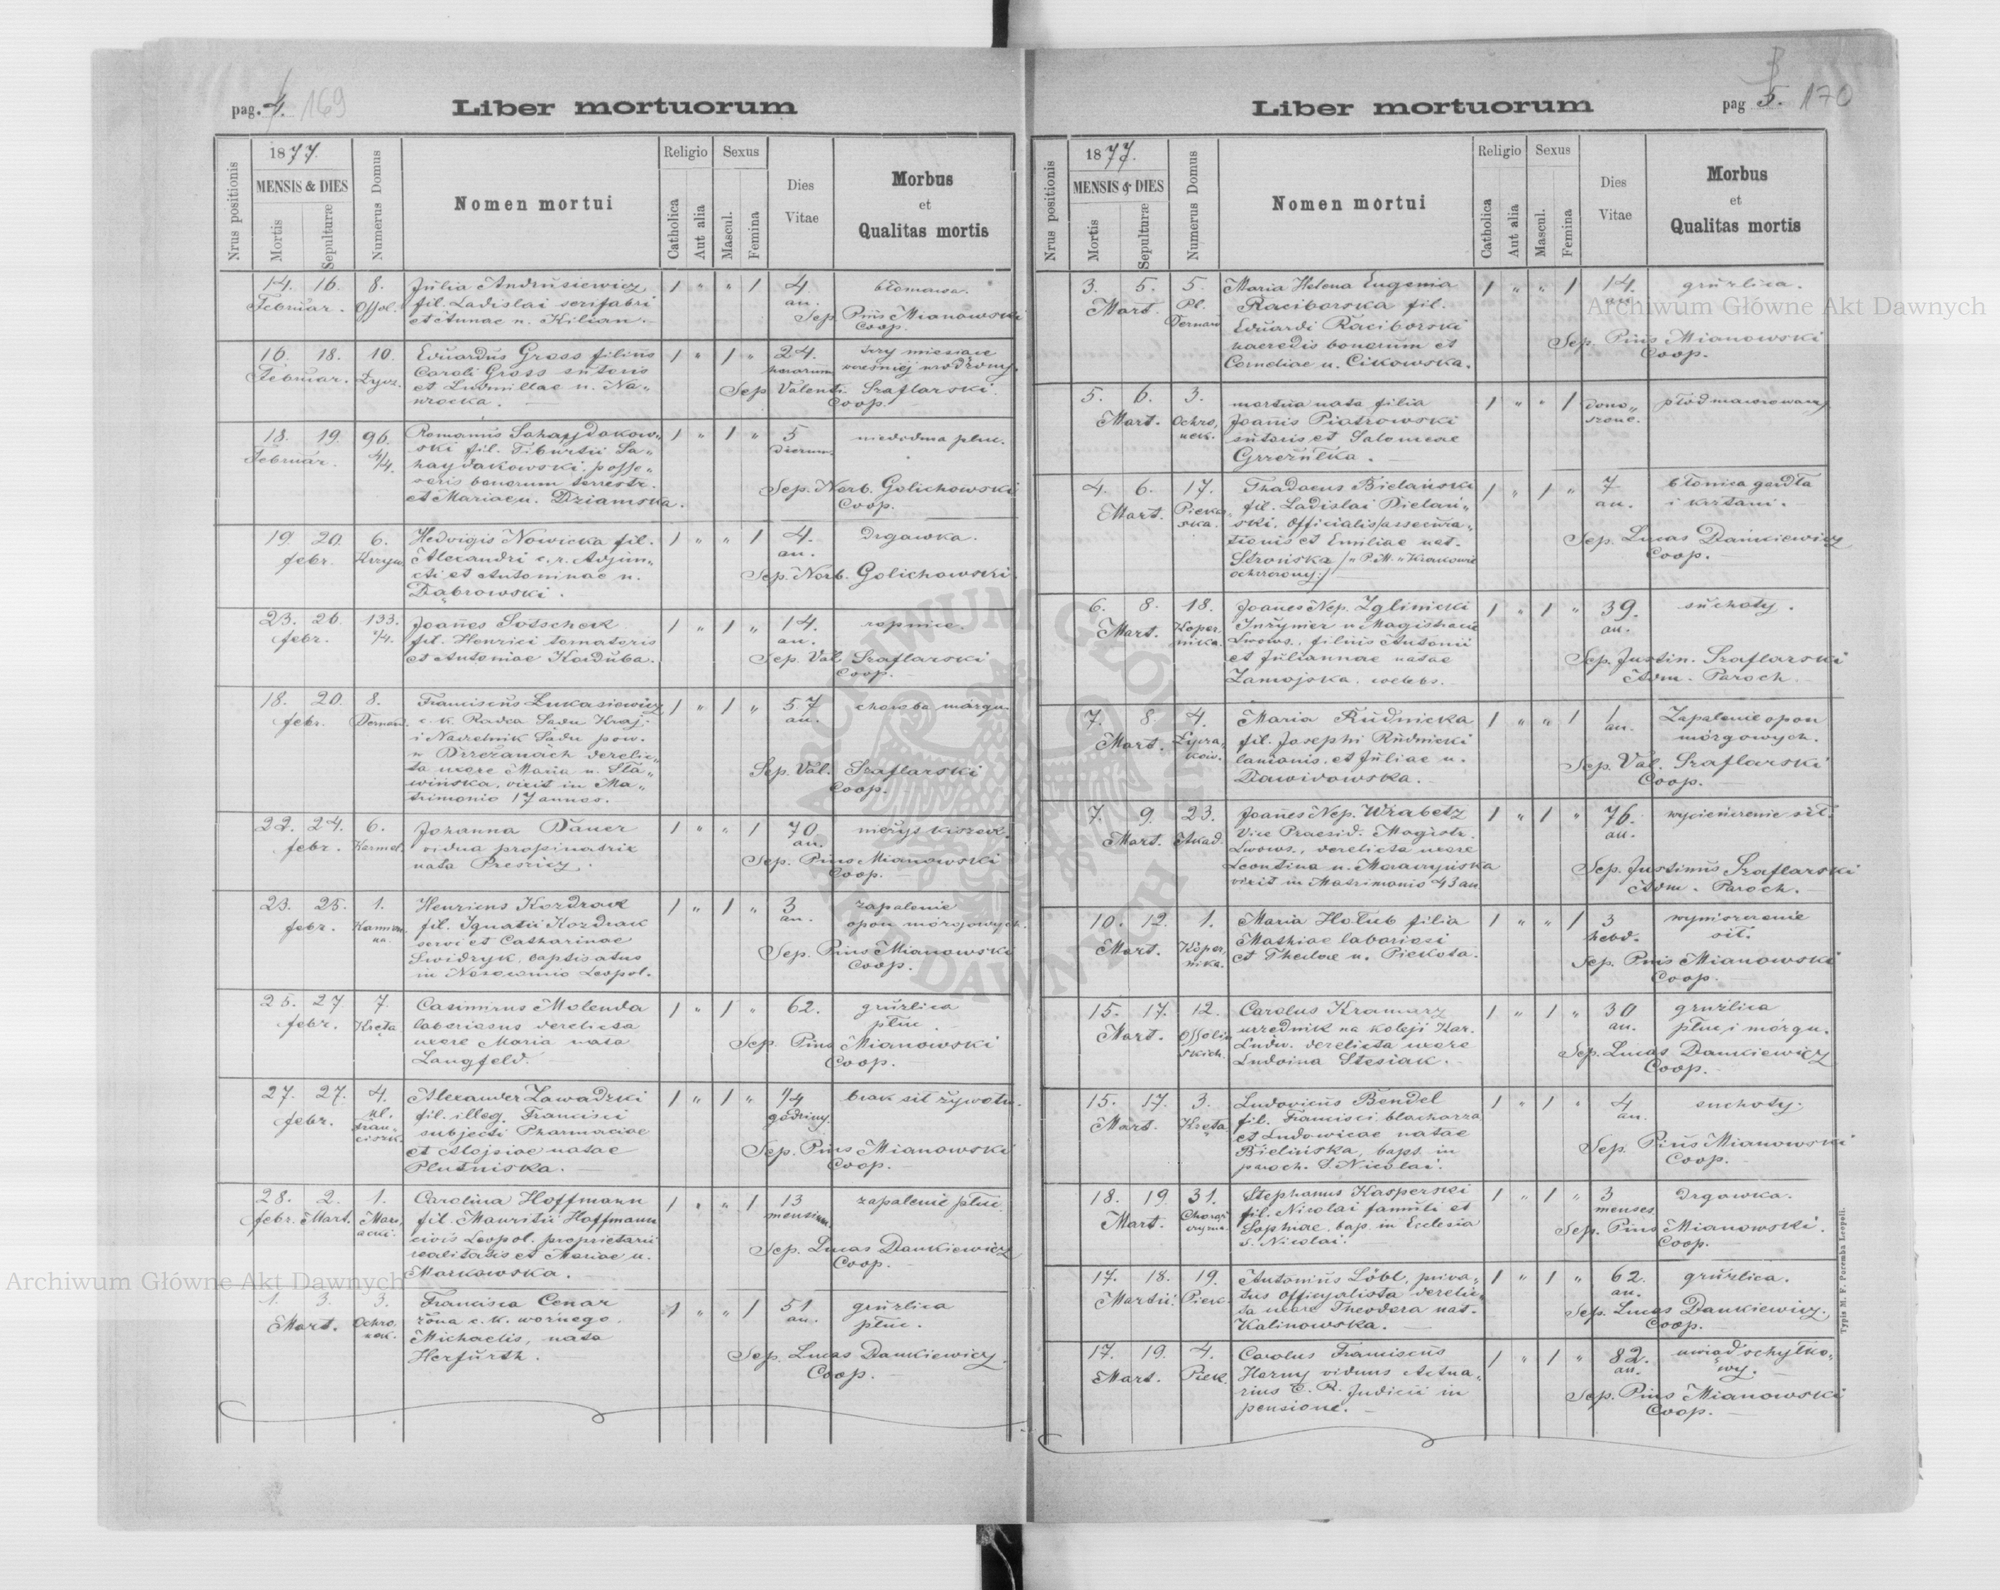 pag. 4. 169
Liber mortuorum
Nrus positionis
1877.
MENSIS & DIES
Mortis
Sepulturæ
Numerus Domus
Nomen mortui
Religio
Catholica
Aut alia
Sexus
Mascul.
Femina
Dies
Vitae
Morbus
et
Qualitas mortis
14. 16. 8. Julia Andrusiewicz 1 " " 1 4
Februar. Ossol. fil. Ladislai serifabri an.
et Annae n. Kilian. Sep. Pius Mianowski
Coop.
16. 18. 10. Eduardus Gross filius 1 " 1 " 24. trzy miesiące
Februar. Caroli Gross sutoris horarum wcześniej urodzony.
et Ludmillae n. Na- Sep. Valenti. Szaflarski
wrocka. Coop.
18. 19. 96. Romanus Sahaydakow- 1 " 1 " 5 niedodma płuc.
Februar. 4/4. ski fil. Tiburtii Sa- Dierum
haydakowski posse-
soris bonorum terrestr. Sep. Norb. Golichowski
et Mariae n. Dziamska. Coop.
19. 20. 6. Hedvigis Nowicka fil. 1 " " 1 4. Drgawka.
febr. Alexandri c. r. Adjun- an.
cti et Antoninae n. Sep. Norb. Golichowski.
Dąbrowski.
23. 26. 133. Joañes Sotschek 1 " 1 " 14. ropnica.
febr. 4/4. fil. Henrici tornatoris an.
et Antoniae Korduba. Sep. Val. Szaflarski
Coop.
18. 20. 8. Franciscus Lukasiewicz 1 " 1 " 57 choroba mózgu.
febr. c. k. Radca Sadu Kraj. an.
i Naczelnik Sadu pow.
w Brzeżanach derelic-
ta uxore Maria n. Sta- Sep. Val. Szaflarski
wińska, vixit in Ma- Coop.
trimonio 17 annos.
22. 24. 6. Johanna Bauer 1 " " 1 70 nieżyt kiszek.
febr. Karmel. vidua propinatrix an.
nata Sep. Pius Mianowski
Coop.
23. 25. 1. Henricus Kozdrak 1 " 1 " 3 zapalenie
febr. fil. Ignatii Kozdrak an. opon mózgowych.
servi et Catharinae Sep. Pius Mianowski
Swidryk, baptisatus Coop.
in Leopol.
25. 27. 7. Casimirus Molenda 1 " 1 " 62. gruzlica
febr. Kręta laboriosus derelicta płuc.
uxore Maria nata Sep. Pius Mianowski
Langfeld. Coop.
27. 27. 4. Alexander Zawadzki 1 " 1 " 1/4 brak sił żywotn.
febr. ul. fran- ciszk. fil. illeg. Francisci godziny.
subjecti Pharmaciae
et Alojsiae natae Sep. Pius Mianowski
Plutniska. Coop.
28. 2. 1. Carolina Hoffmann 1 " " 1 13 zapalenie płuc.
febr. Mart. fil. Mauritii Hoffmann mensium
civis Leopol. proprietarii
realitatis et Mariae n. Sep. Lucas Dankiewicz
Markowska. Coop.
1. 3. 3. Francisca Cenar 1 " " 1 51 gruzlica
Mart. Ochro nek. żona c. k. woźnego an. płuc.
Michaelis, nata
Herfurth. Sep. Lucas Dankiewicz.
Coop.
pag 5. 170
Liber mortuorum
Nrus positionis
1877.
MENSIS & DIES
Mortis
Sepulturæ
Numerus Domus
Nomen mortui
Religio
Catholica
Aut alia
Sexus
Mascul.
Femina
Dies
Vitae
Morbus
et
Qualitas mortis
3. 5. 5. Maria Helena Eugenia 1 " " 1 14. gruzlica.
Mart. Pl. Raciborska fil. an.
Bernard Eduardi Raciborski Sep. Pius Mianowski
haeredis bonorum et Coop.
Corneliae n. Cikowska.
5. 6. 3. mortua nata filia 1 " " 1 dono- płód
Mart. Ochro nek. Joanis Piotrowski szone.
sutoris et Salomeae
4. 6. 17. Thadaeus Bielański 1 " 1 " 7 błonica gardła
Mart. Piekar ska. fil. Ladislai Bielań- an. i krtani.
ski, officialis assecura-
tionis et Emiliae nat. Sep. Lucas Dankiewicz
Strońska /" P. M. w Krakowie Coop.
ochrzczony:/
6. 8. 18. Joañes Nep. Zgliniecki 1 " 1 " 39. suchoty.
Mart. Koper. nika. Inżynier n Magistracie an.
Lwows. filius Antonii
et Juliannae natae Sep. Justin. Szaflarski
Zamojska, coelebs. Adm. Paroch.
7. 8. 4. Maria Rudnicka 1 " " 1 1 Zapalenie opon
Mart. fil. Josephi Rudnicki an. mózgowych.
lanionis, et Juliae n. Sep. Val. Szaflarski
Dawidowska. Coop.
7. 9. 23. Joañes Nep. Wrabetz 1 " 1 " 76. wycieńczenie sił.
Mart. Akad. Vice Praesid. Magistr. an.
Lwows., derelicta uxore
Leontina n. Sep. Justinus Szaflarski
vixit in Matrimonio 43 an. Adm. Paroch.
10. 12. 1. Maria Hołub filia 1 " " 1 3 wyniszczenie
Mart. Koper- nika. Mathiae laboriosi hebd. sił.
et Theclae n. Piekota. Sep. Pius Mianowski
Coop.
15. 17. 12. Carolus Kramarz 1 " 1 " 30 gruzlica
Mart. Ossoliń skich. urzędnik na koleji Kar. an. płuc i mózgu.
Ludw. derelicta uxore Sep. Lucas Dankiewicz
Ludovina Stesiak. Coop.
15. 17. 3. Ludovicus Bendel 1 " 1 " 4 suchoty.
Mart. Kręta fil. Francisci blacharza an.
et Ludowicae natae Sep. Pius Mianowski
Bielińska, bapt. in Coop.
paroch. S. Nicolai.
18. 19. 31. Stephanus Kasperski 1 " 1 " 3 Drgawka.
Mart. fil. Nicolai famuli et menses
Sophiae, bap. in Ecclesia Sep. Pius Mianowski.
S. Nicolai. Coop.
17. 18. 19. Antonius Löbl, priva- 1 " 1 " 62. gruzlica.
Martii. Piek. tus Officyalista derelic- an.
ta uxore Theodora nat. Sep. Lucas Dankiewicz.
Kalinowska. Coop.
17. 19. 4. Carolus Franciscus 1 " 1 " 82. uwiąd schyłko-
Mart. Piek. Horny viduus Actua- an. wy.
rius C. R. Judicii in Sep. Pius Mianowski
pensione. Coop.
Typis M. F. Poremba Leopoli.
Archiwum Główne Akt Dawnych
Archiwum Główne Akt Dawnych
ARCHIWUM GŁÓWNE AKT DAWNYCH